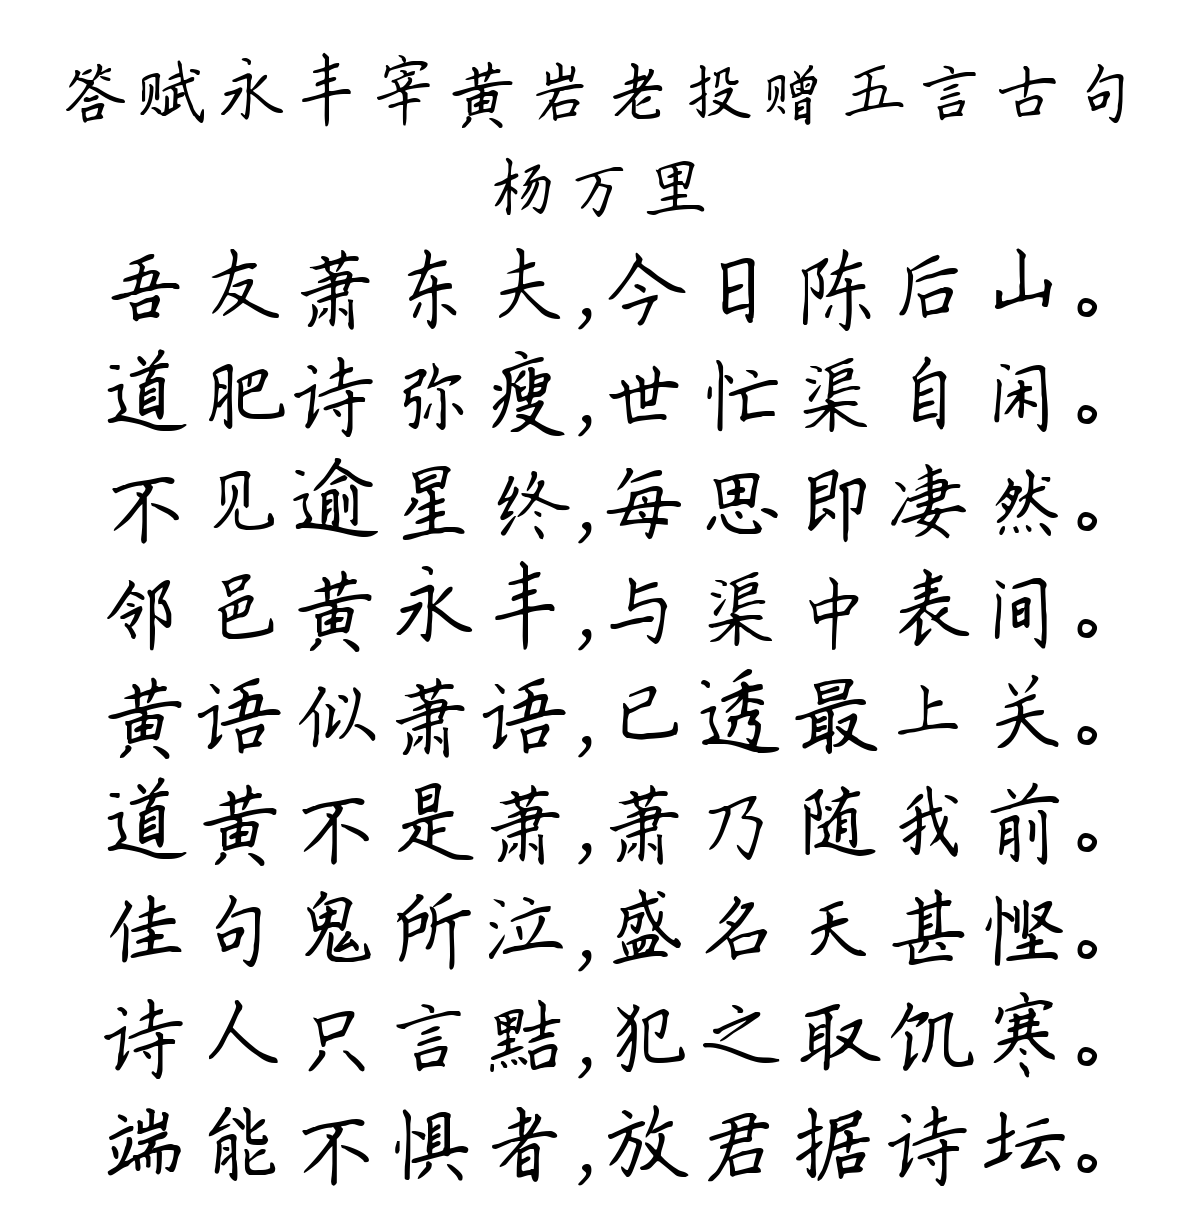 答赋永丰宰黄岩老投赠五言古句
杨万里
吾友萧东夫,今日陈后山。
道肥诗弥瘦,世忙渠自闲。
不见逾星终,每思即凄然。
邻邑黄永丰,与渠中表间。
黄语似萧语,已透最上关。
道黄不是萧,萧乃随我前。
佳句鬼所泣,盛名天甚悭。
诗人只言黠,犯之取饥寒。
端能不惧者,放君据诗坛。